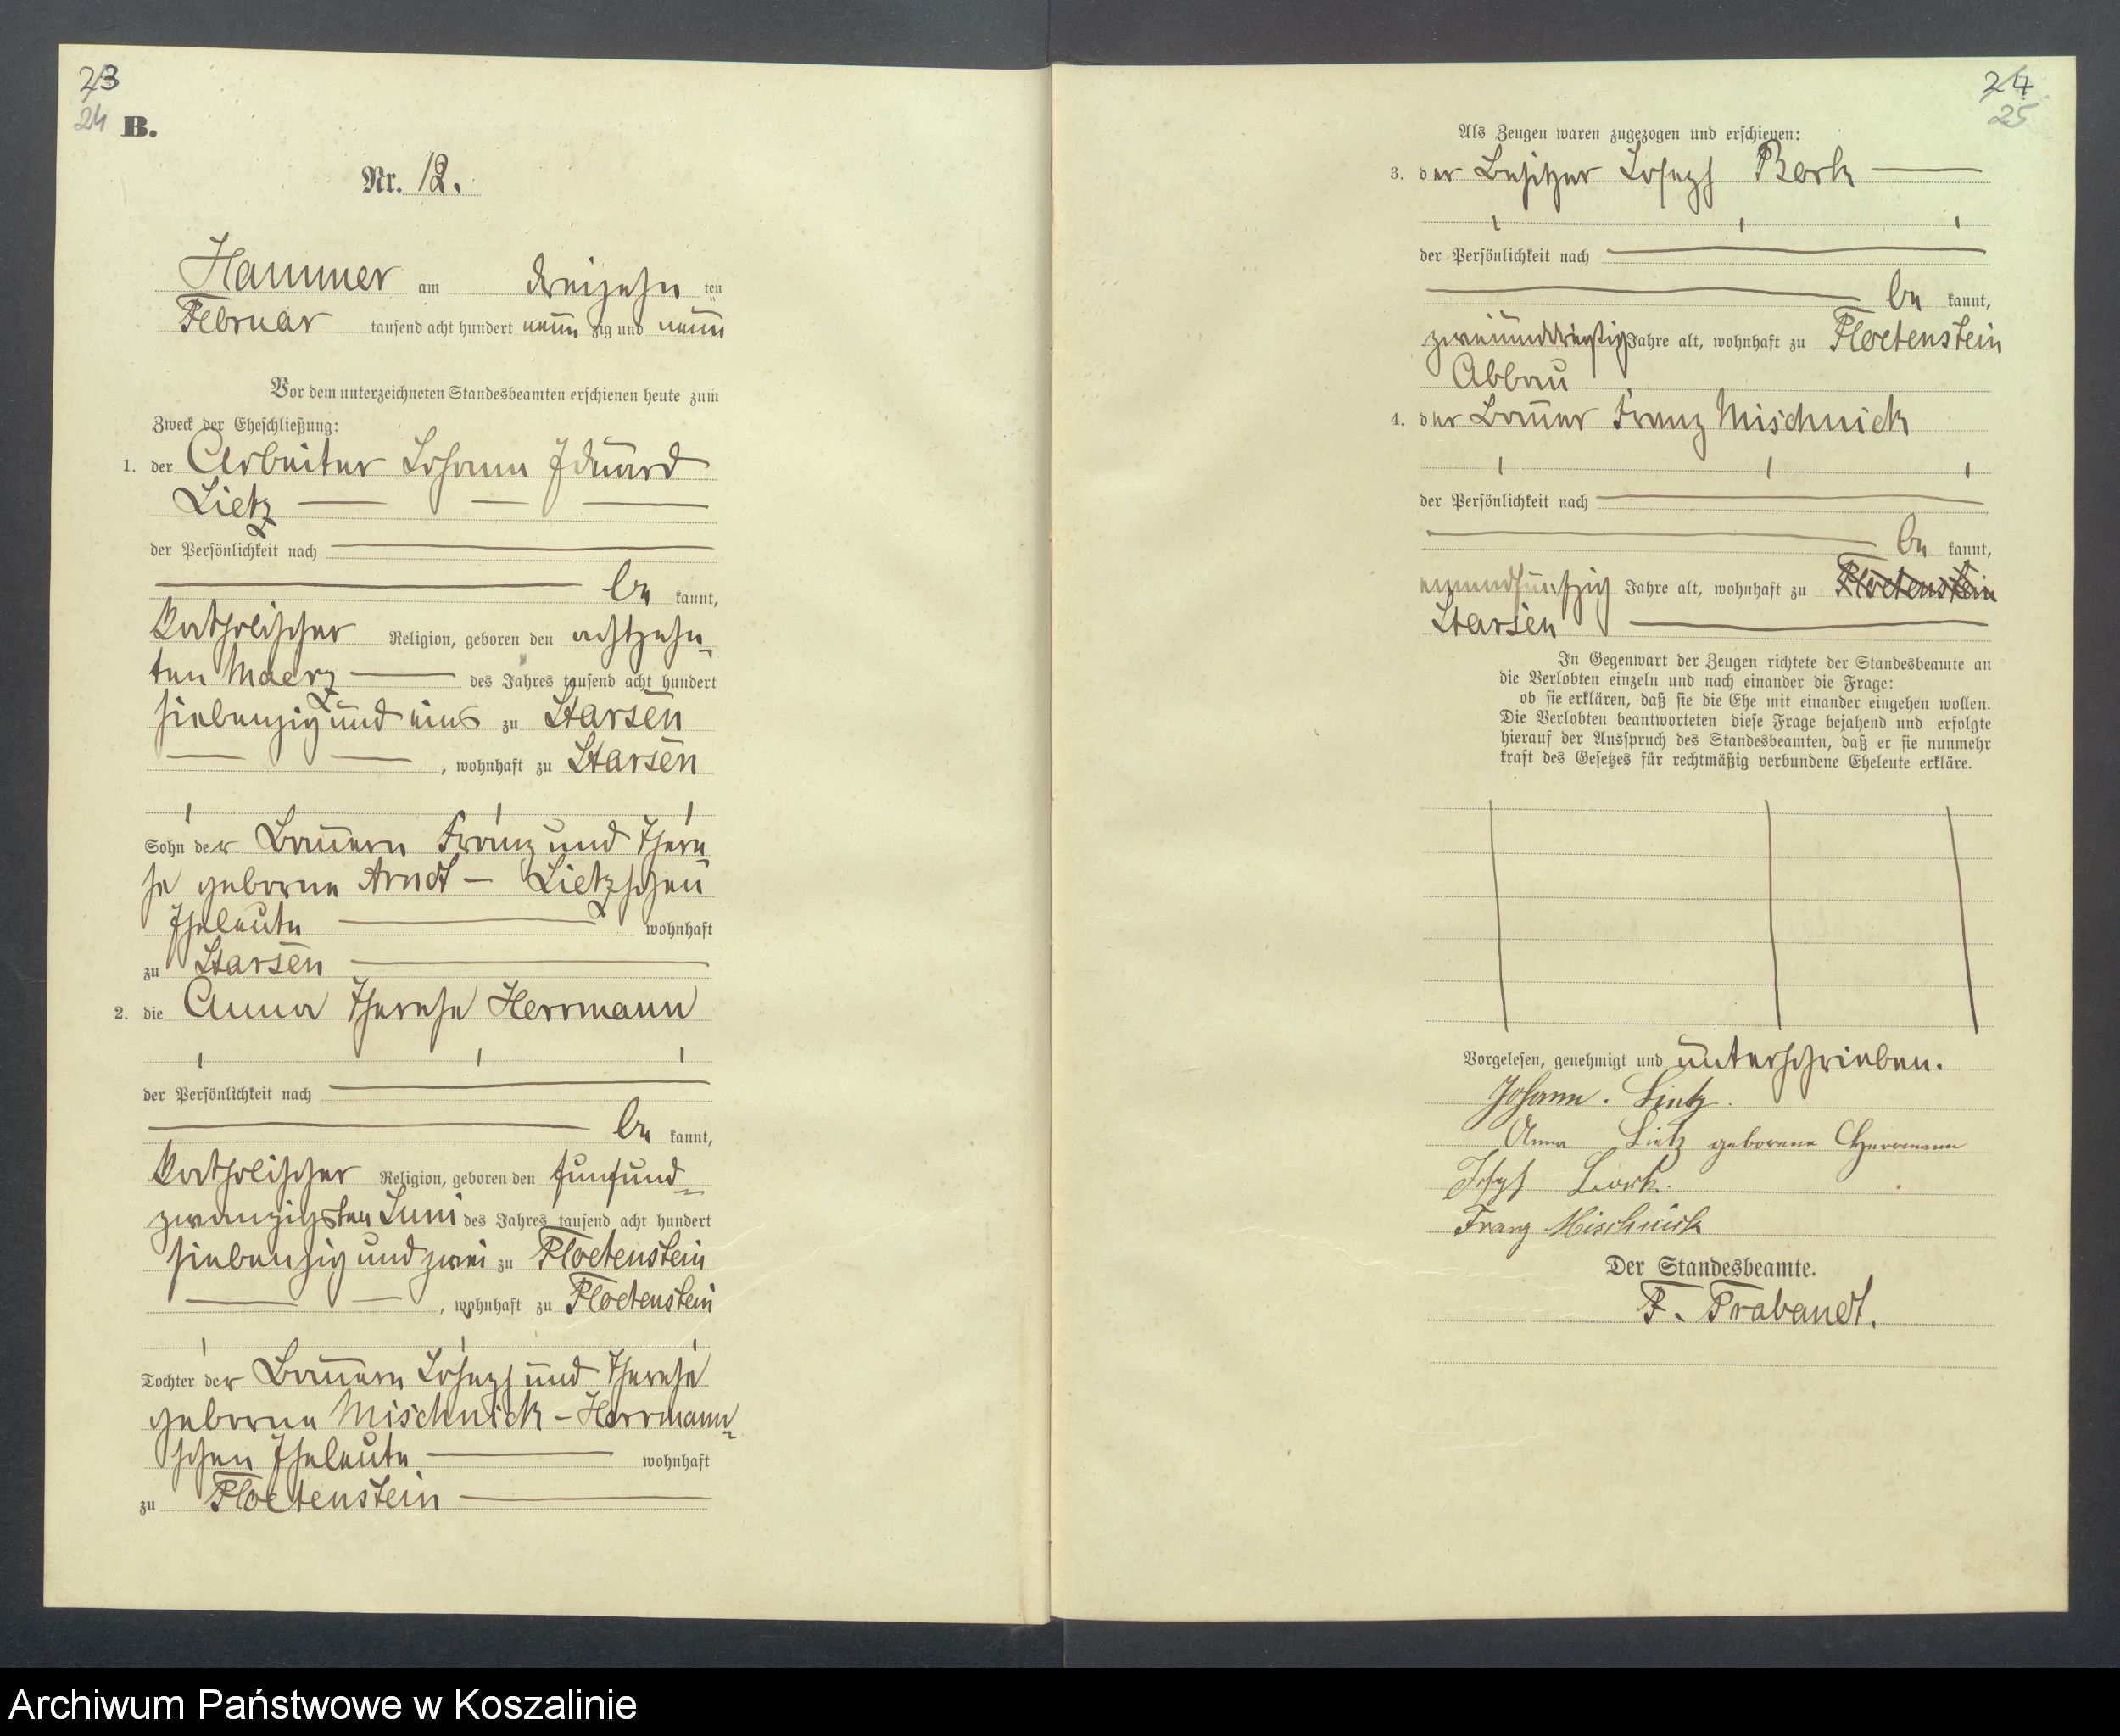 23
24
B.
Nr. 12.
Hammer am dreizehn ten
Februar tausend acht hundert neun zig und neun
Vor dem unterzeichneten Standesbeamten erschienen heute zum
Zweck der Eheschließung:
1. der Arbeiter Johann Eduard
Lietz
der Persönlichkeit nach
be kannt,
katholischer Religion, geboren den achtzehn-
ten Maerz des Jahres tausend acht hundert
siebenzig und eins zu Starsen
, wohnhaft zu Starsen
Sohn der Bauern Franz und There
se geborne Arndt - Lietzschen
Eheleute wohnhaft
zu Starsen
2. die Anna Therese Herrmann
der Persönlichkeit nach
be kannt,
katholischer Religion, geboren den funfund-
zwanzigsten Juni des Jahres tausend acht hundert
siebenzig und zwei zu Floetenstein
, wohnhaft zu Floetenstein
Tochter der Bauern Joseph und Therese
geborne Mischnick - Herrmann-
schen Eheleute wohnhaft
zu Floetenstein
24
25
Als Zeugen waren zugezogen und erschienen:
3. der Besitzer Joseph Bork
der Persönlichkeit nach
be kannt,
zweiunddreißig Jahre alt, wohnhaft zu Floetenstein
Abbau
4. der Bauer Franz Mischnick
der Persönlichkeit nach
be kannt,
einundfünfzig Jahre alt, wohnhaft zu Floetenstein
Starsen
In Gegenwart der Zeugen richtete der Standesbeamte an
die Verlobten einzeln und nach einander die Frage:
ob sie erklären, daß sie die Ehe mit einander eingehen wollen.
Die Verlobten beantworteten diese Frage bejahend und erfolgte
hierauf der Ausspruch des Standesbeamten, daß er sie nunmehr
kraft des Gesetzes für rechtmäßig verbundene Eheleute erkläre.
Vorgelesen, genehmigt und unterschrieben.
Johann. Lietz.
Anna Lietz geborene Herrmann
Josef Bork.
Franz Mischnick
Der Standesbeamte.
F. Brabandt.
Archiwum Państwowe w Koszalinie